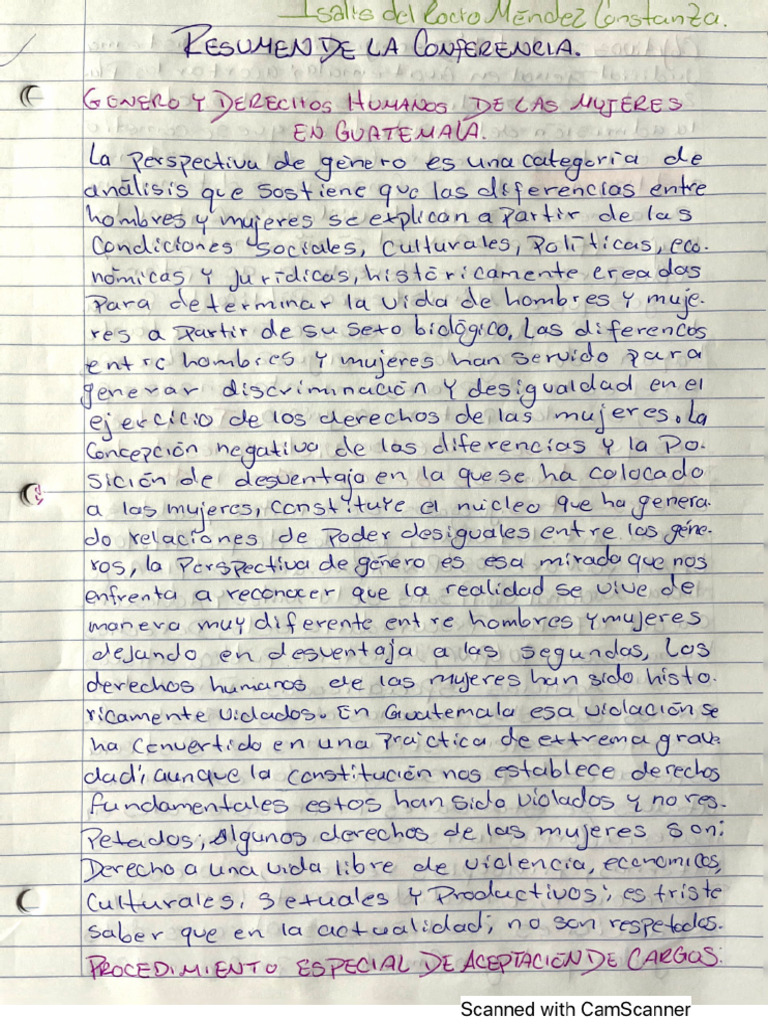 Isalis del Rocío Méndez Constanza.
RESUMEN DE LA CONFERENCIA.
GENERO Y DERECHOS HUMANOS DE LAS MUJERES
EN GUATEMALA.
La perspectiva de género es una categoría de
análisis que sostiene que las diferencias entre
hombres y mujeres se explican a partir de las
condiciones sociales, culturales, políticas, eco-
nómicas y jurídicas, históricamente creadas
para determinar la vida de hombres y muje-
res a partir de su sexo biológico, Las diferencos
entre hombres y mujeres han servido para
generar discriminación y desigualdad en el
ejercicio de los derechos de las mujeres. La
Concepción negativa de las diferencias y la po-
sición de desventaja en la que se ha colocado
a las mujeres, constituye el núcleo que ha genera-
do relaciones de poder desiguales entre los géne-
ros, la perspectiva de género es esa mirada que nos
enfrenta a reconocer que la realidad se vive de
manera muy diferente entre hombres y mujeres
dejando en desventaja a las segundas, Los
derechos humanos de las mujeres han sido histo-
ricamente violados. En Guatemala esa violación se
ha convertido en una práctica de extrema grave-
dad, aunque la constitución nos establece derechos
fundamentales estos han sido violados y no res-
petados; algunos derechos de las mujeres son:
Derecho a una vida libre de violencia, economicos,
Culturales, sexuales y Productivos; es triste
saber que en la actualidad, no son respetados.
PROCEDIMIENTO ESPECIAL DE ACEPTACIÓN DE CARGOS:
Scanned with CamScanner